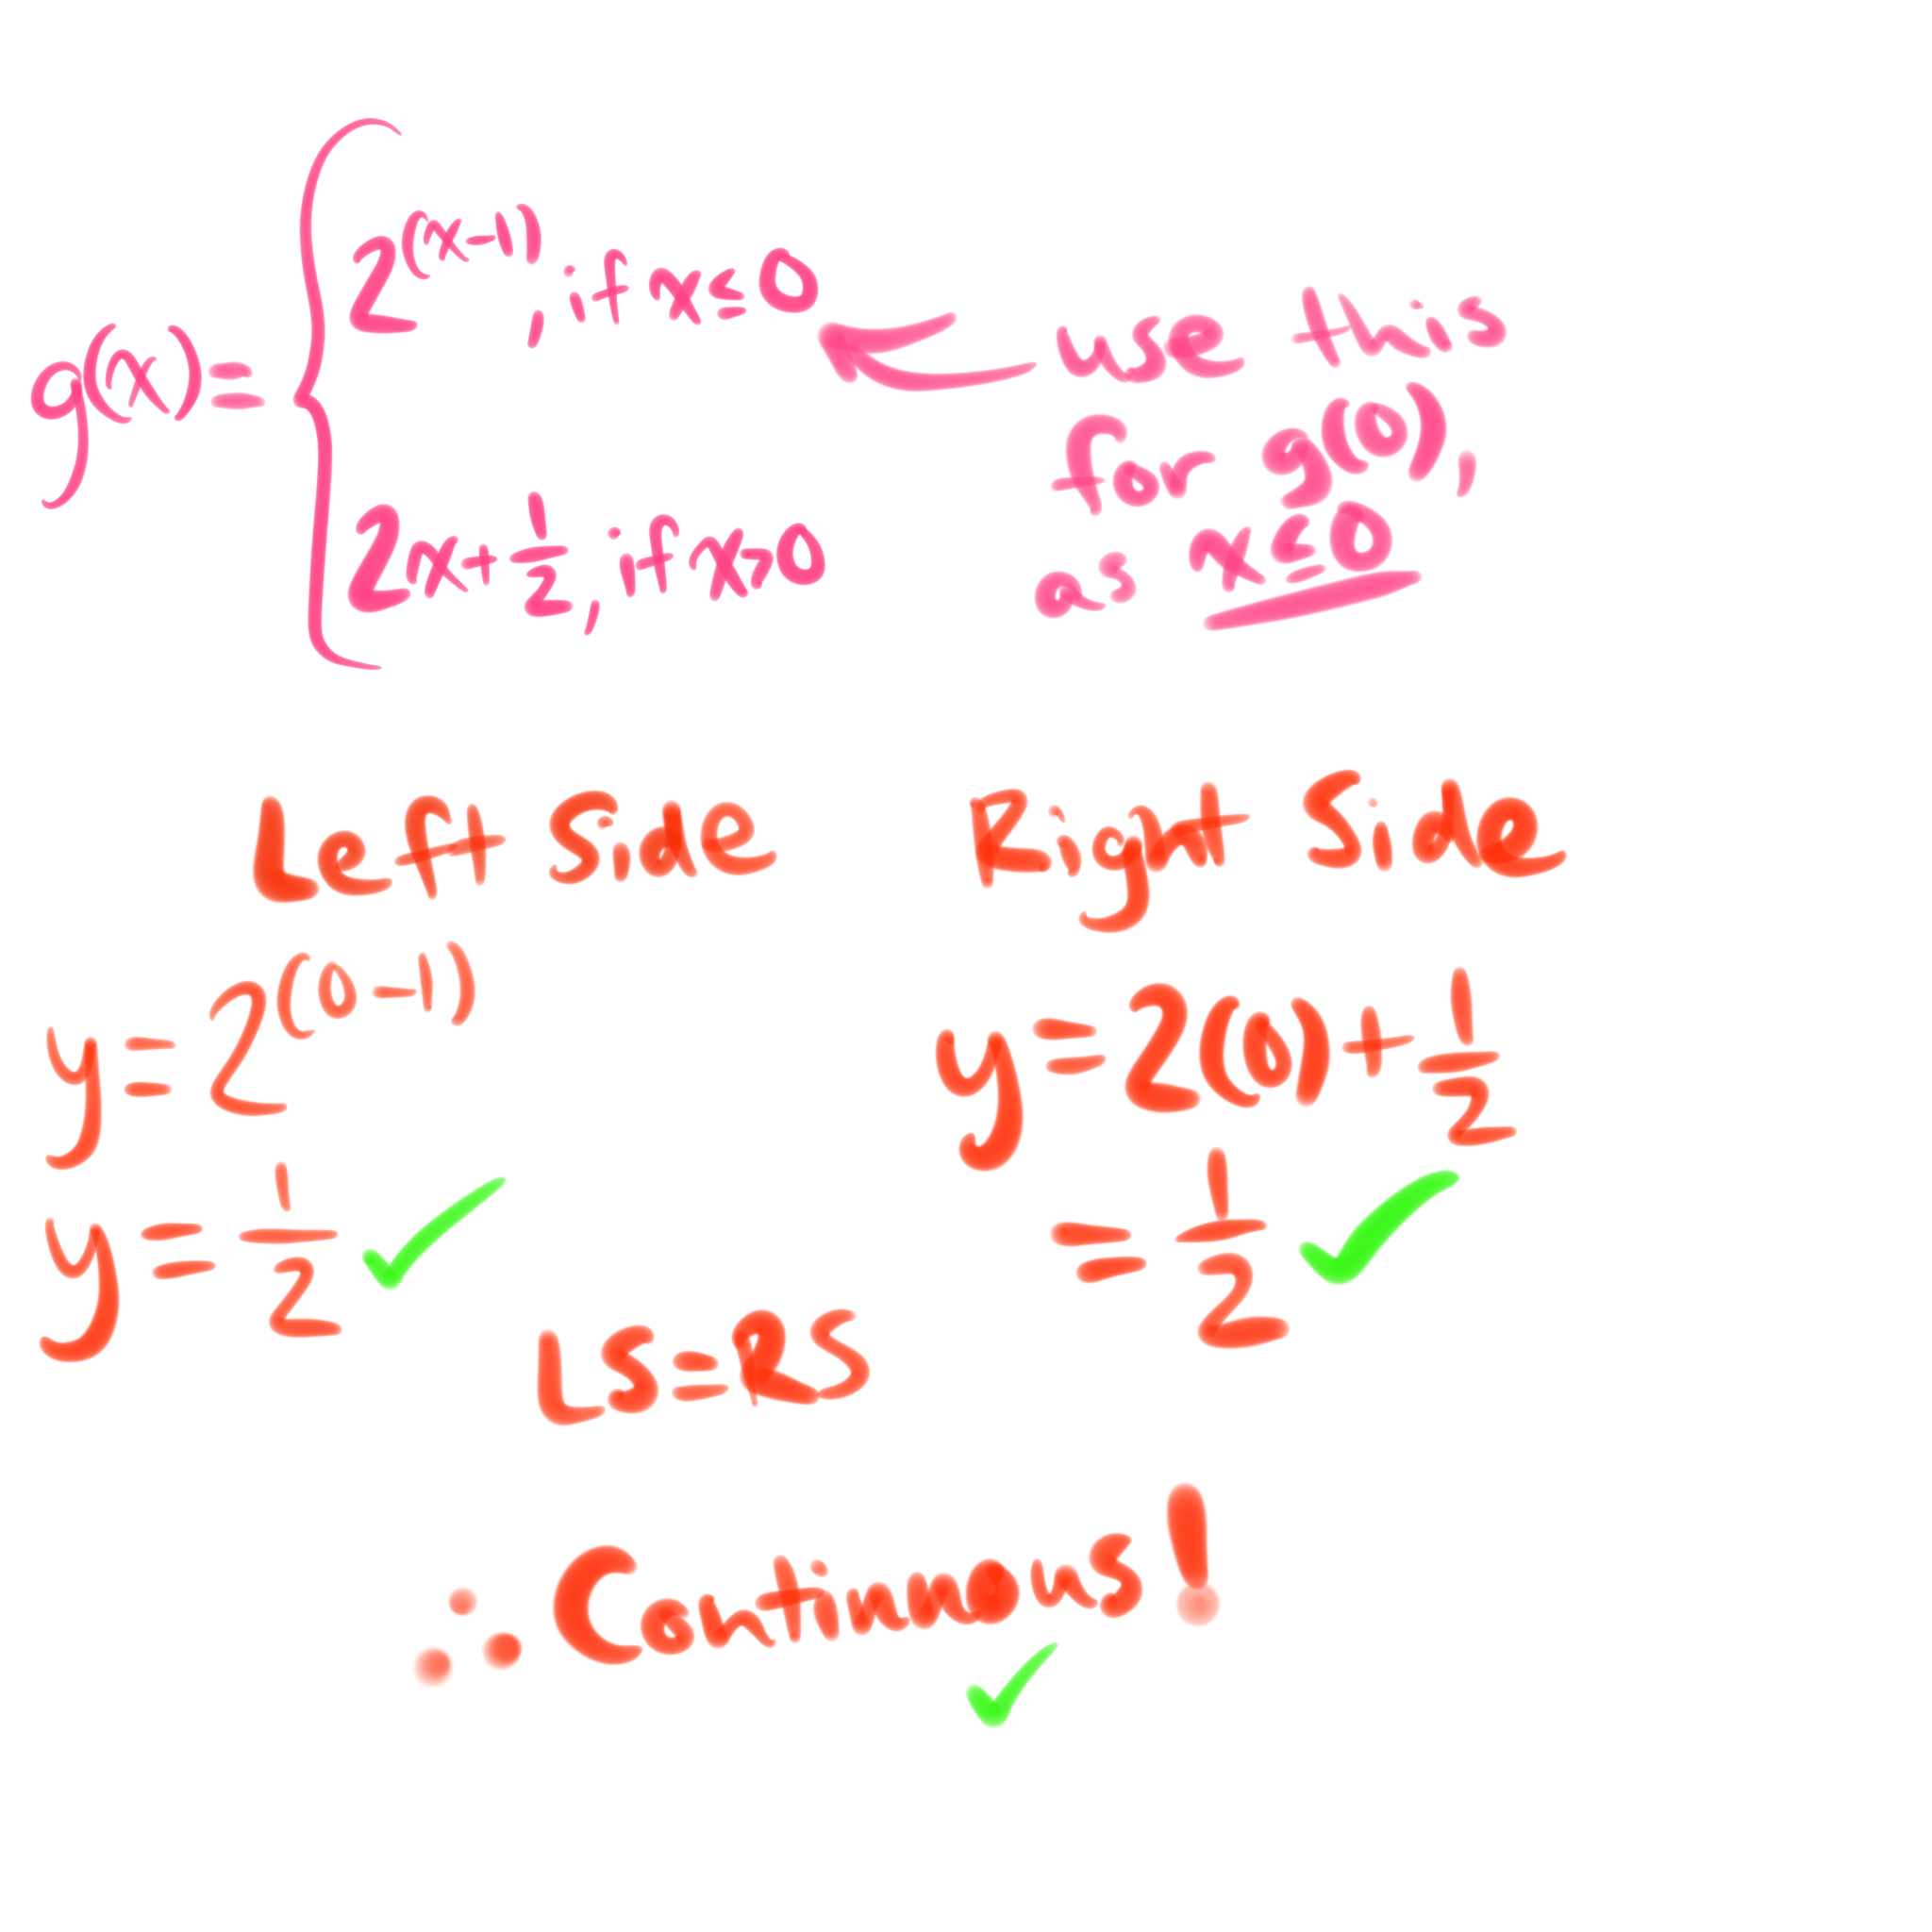 g(x) = { 2^(x-1), if x ≤ 0
2x + 1/2, if x > 0
use this
for g(0),
as x ≤ 0
Left Side
Right Side
y = 2^(0-1)
y = 2(0) + 1/2
y = 1/2 ✓
= 1/2 ✓
LS = RS
∴ Continuous! ✓